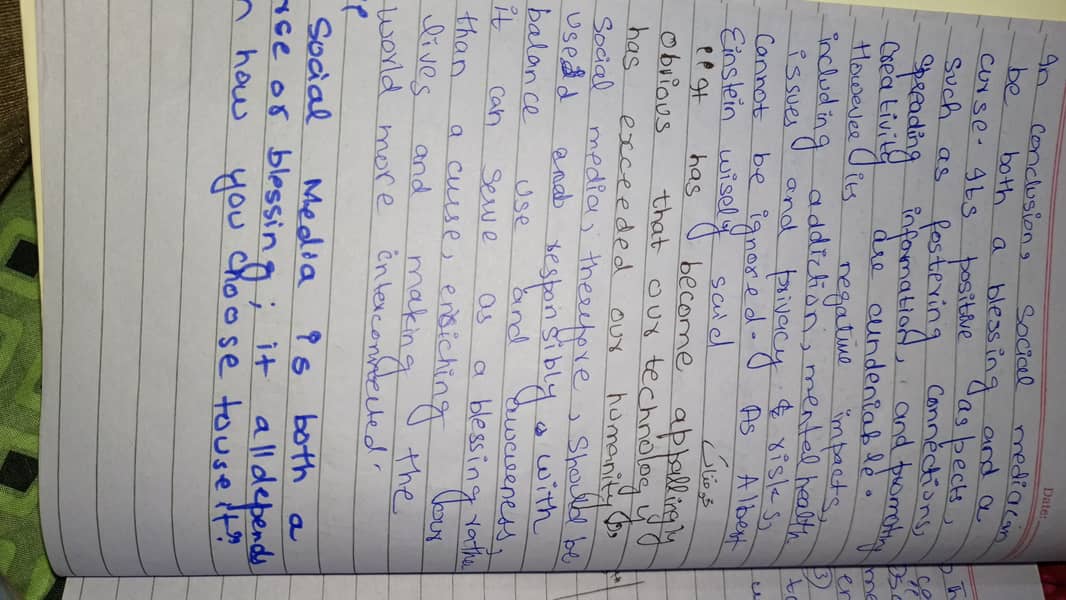 Date:
In conclusion, social media can
be both a blessing and a
curse. Its positive aspects,
such as fostering connections,
spreading information, and promoting
creativity are undeniable.
However its negative impacts,
including addiction, mental health
issues and privacy & risks,
cannot be ignored. As Albert
Einstein wisely said
"It has become appallingly
obvious that our technology
has exceeded our humanity"
Social media, therefore, should be
used and responsibly with
balance use and awareness,
it can serve as a blessing rather
than a curse, enriching our
lives and making the
world more interconnected.
Social Media is both a
rse or blessing; it all depends
n how you choose to use it"